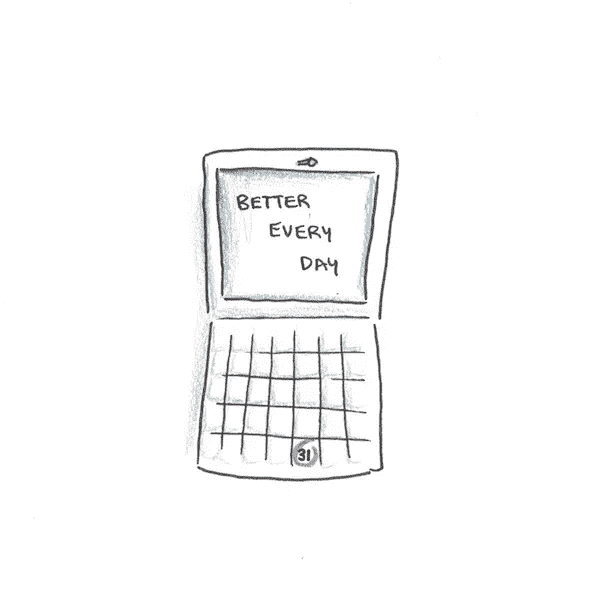 BETTER
EVERY
DAY
31